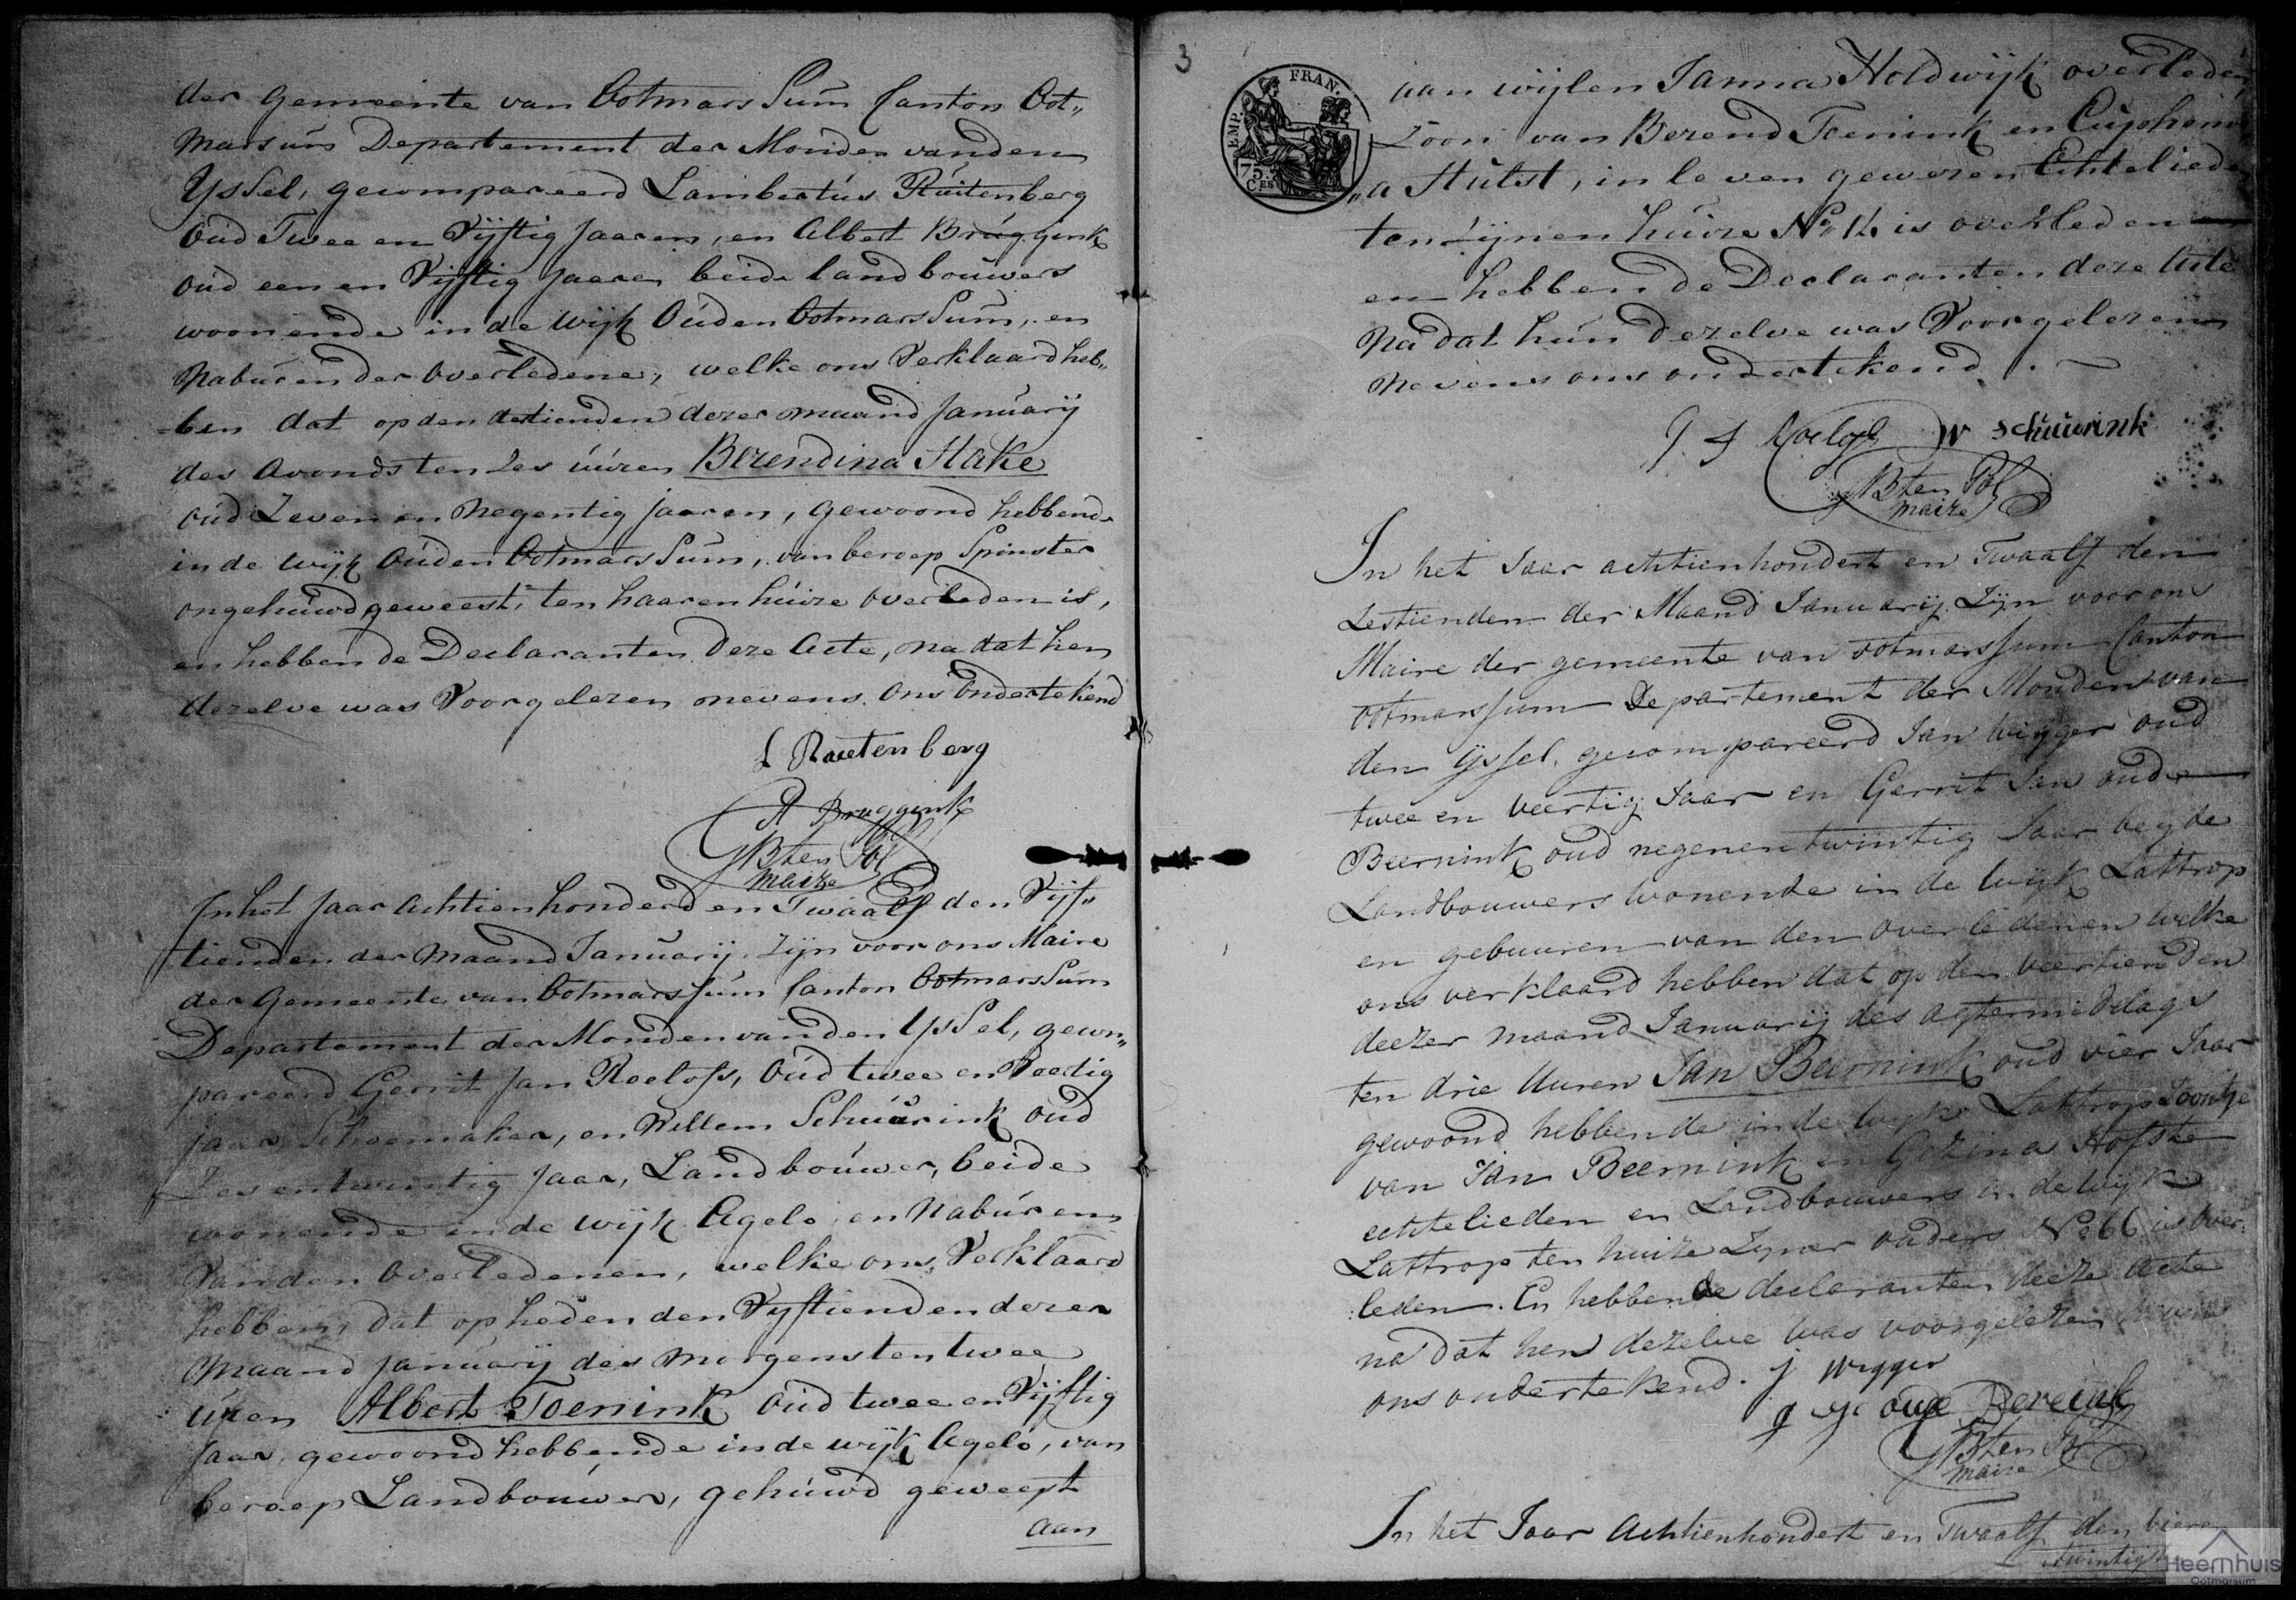 der Gemeente van Ootmarssum Canton Oot„
marsum Departement der Monden van den
Yssel, gecompareerd Lambertus Ruitenberg
oud Twee en Vijftig Jaaren, en Albert Bruggink
oud een en Vijftig Jaaren beide landbouwers
woonende in de wijk Ouden Ootmarssum, en
Naburen der Overledene, welke ons Verklaard heb„
ben dat op den dertienden dezer maand Januarij
des avonds ten Zes uuren Berendina Stake
oud Zeven en Negentig jaaren, gewoond hebbende
in de wijk Ouden Ootmarssum, van beroep Spinster
ongehuwd geweest, ten haaren huize overleden is,
en hebben de Declaranten deze Acte, na dat hen
dezelve was Voorgelezen nevens Ons Ondertekend
L Ruetenberg
A Bruggink
GB ten Pol
maire
In het Jaar Achtienhonderd en Twaalf den Vijf„
tienden der Maand Januarij Zijn voor ons Maire
der Gemeente van Ootmarssum Canton Ootmarssum
Departement der Monden van den Yssel, gecom„
pareerd Gerrit Jan Roelofs, Oud twee en Veertig
jaar Schoemaker, en Willem Schuurink Oud
Zes en twintig Jaar, Landbouwer, beide
wonende in de wijk Agelo, en Naburen
Van den Overledenen, welke ons Verklaard
hebben, dat op heden den Vijftienden dezer
Maand Januarij des morgens ten twee
uren Albert Toenink Oud twee en Vijftig
Jaar, gewoond hebbende in de wijk Agelo, van
beroep Landbouwer, gehuwd geweest
aan
3
EMP. FRAN.
75.
CES
aan wijlen Janna Holdwijk overleden,
Zoon van Berend Toenink en Euphemi„
„a Hulst, in leven gewezen Echtelieden
ten Zijnen huize No 14 is overleden
en hebben de Declaranten deze Acte
Na dat hun dezelve was Voorgelezen
Nevens ons ondertekend.
G. J Roelofs W schuurink
GB ten Pol
maire
In het Jaar achtienhondert en Twaalf den
Zestienden der Maand Januarij Zijn voor ons
Maire der gemeente van ootmarssum Canton
ootmarssum Departement der Monden van
den Yssel, gecompareerd Jan Wigger oud
twee en veertig Jaar en Gerrit Jan oude
Beernink oud negenentwintig Jaar beyde
Landbouwers wonende in de wijk Lattrop
en gebuuren van den overledenen welke
ons verklaard hebben dat op den veertienden
deezer maand Januarij des agtermiddags
ten drie Uuren Jan Beernink oud vier Jaar
gewoond hebbende in de wijk Lattrop Zoontje
van Jan Beernink en Gezina Hofste
echtelieden en Landbouwers in de wijk
Lattrop ten huize Zyner ouders No 66 is over:
:leden. En hebben de declaranten deeze Acte
na dat hen dezelve was voorgelezen nevens
ons ondertekend. J Wigger
g J oude Berenk
GB ten Pol
maire
In het Jaar Achtienhondert en Twaalf den vieren
twintigsten
Heemhuis
Ootmarsum